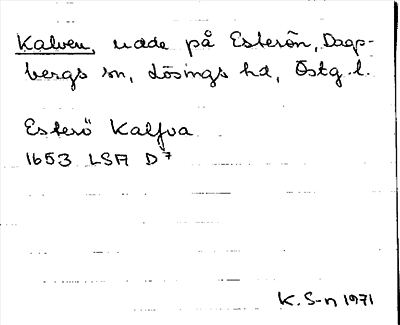 Kalven, udde på Esterön, Dags-
bergs sn, Lösings hd, Östg.l.
Esterö Kalfva
1653 LSA D7
K. S-n 1971